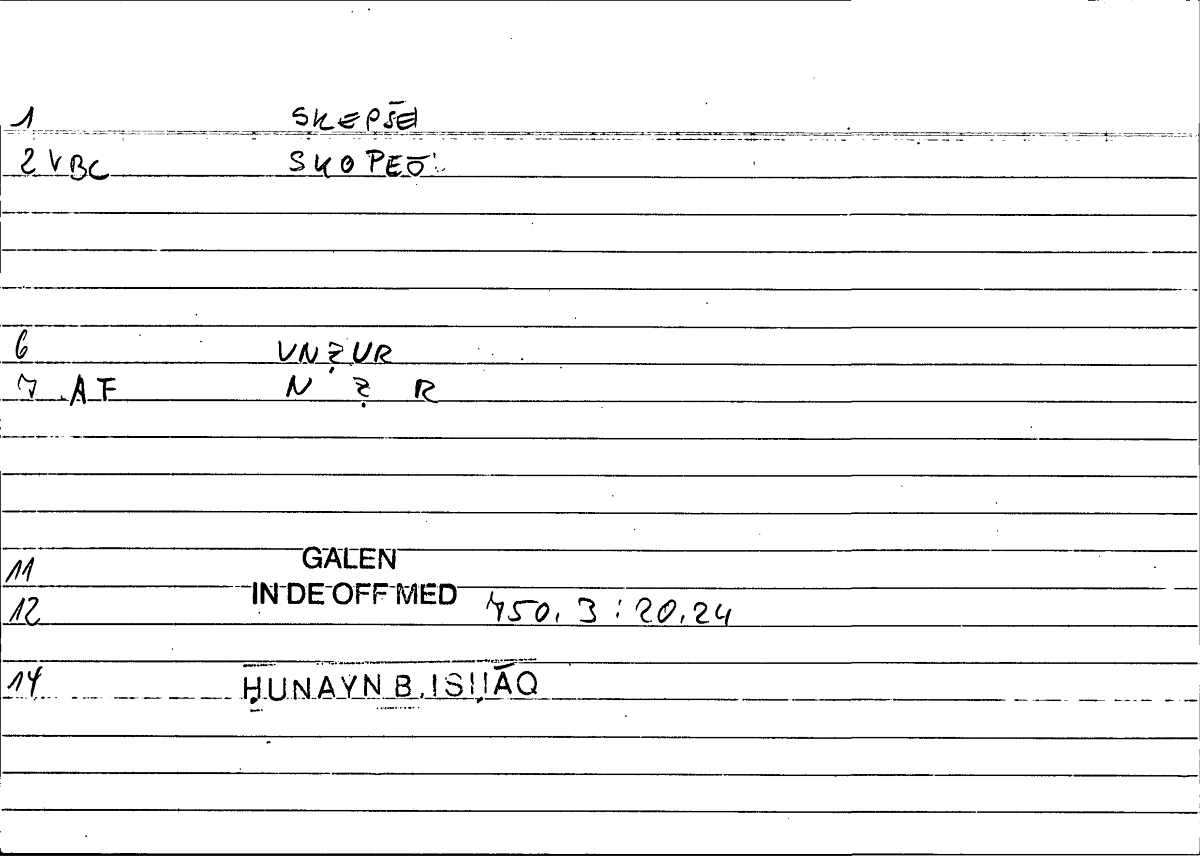 1 SKEPSĒI
2 VBC SKOPEŌ
6 UNẒUR
7 AF N Ẓ R
11 GALEN
12 IN DE OFF MED 750, 3 : 20.24
14 ḤUNAYN B. ISḤĀQ